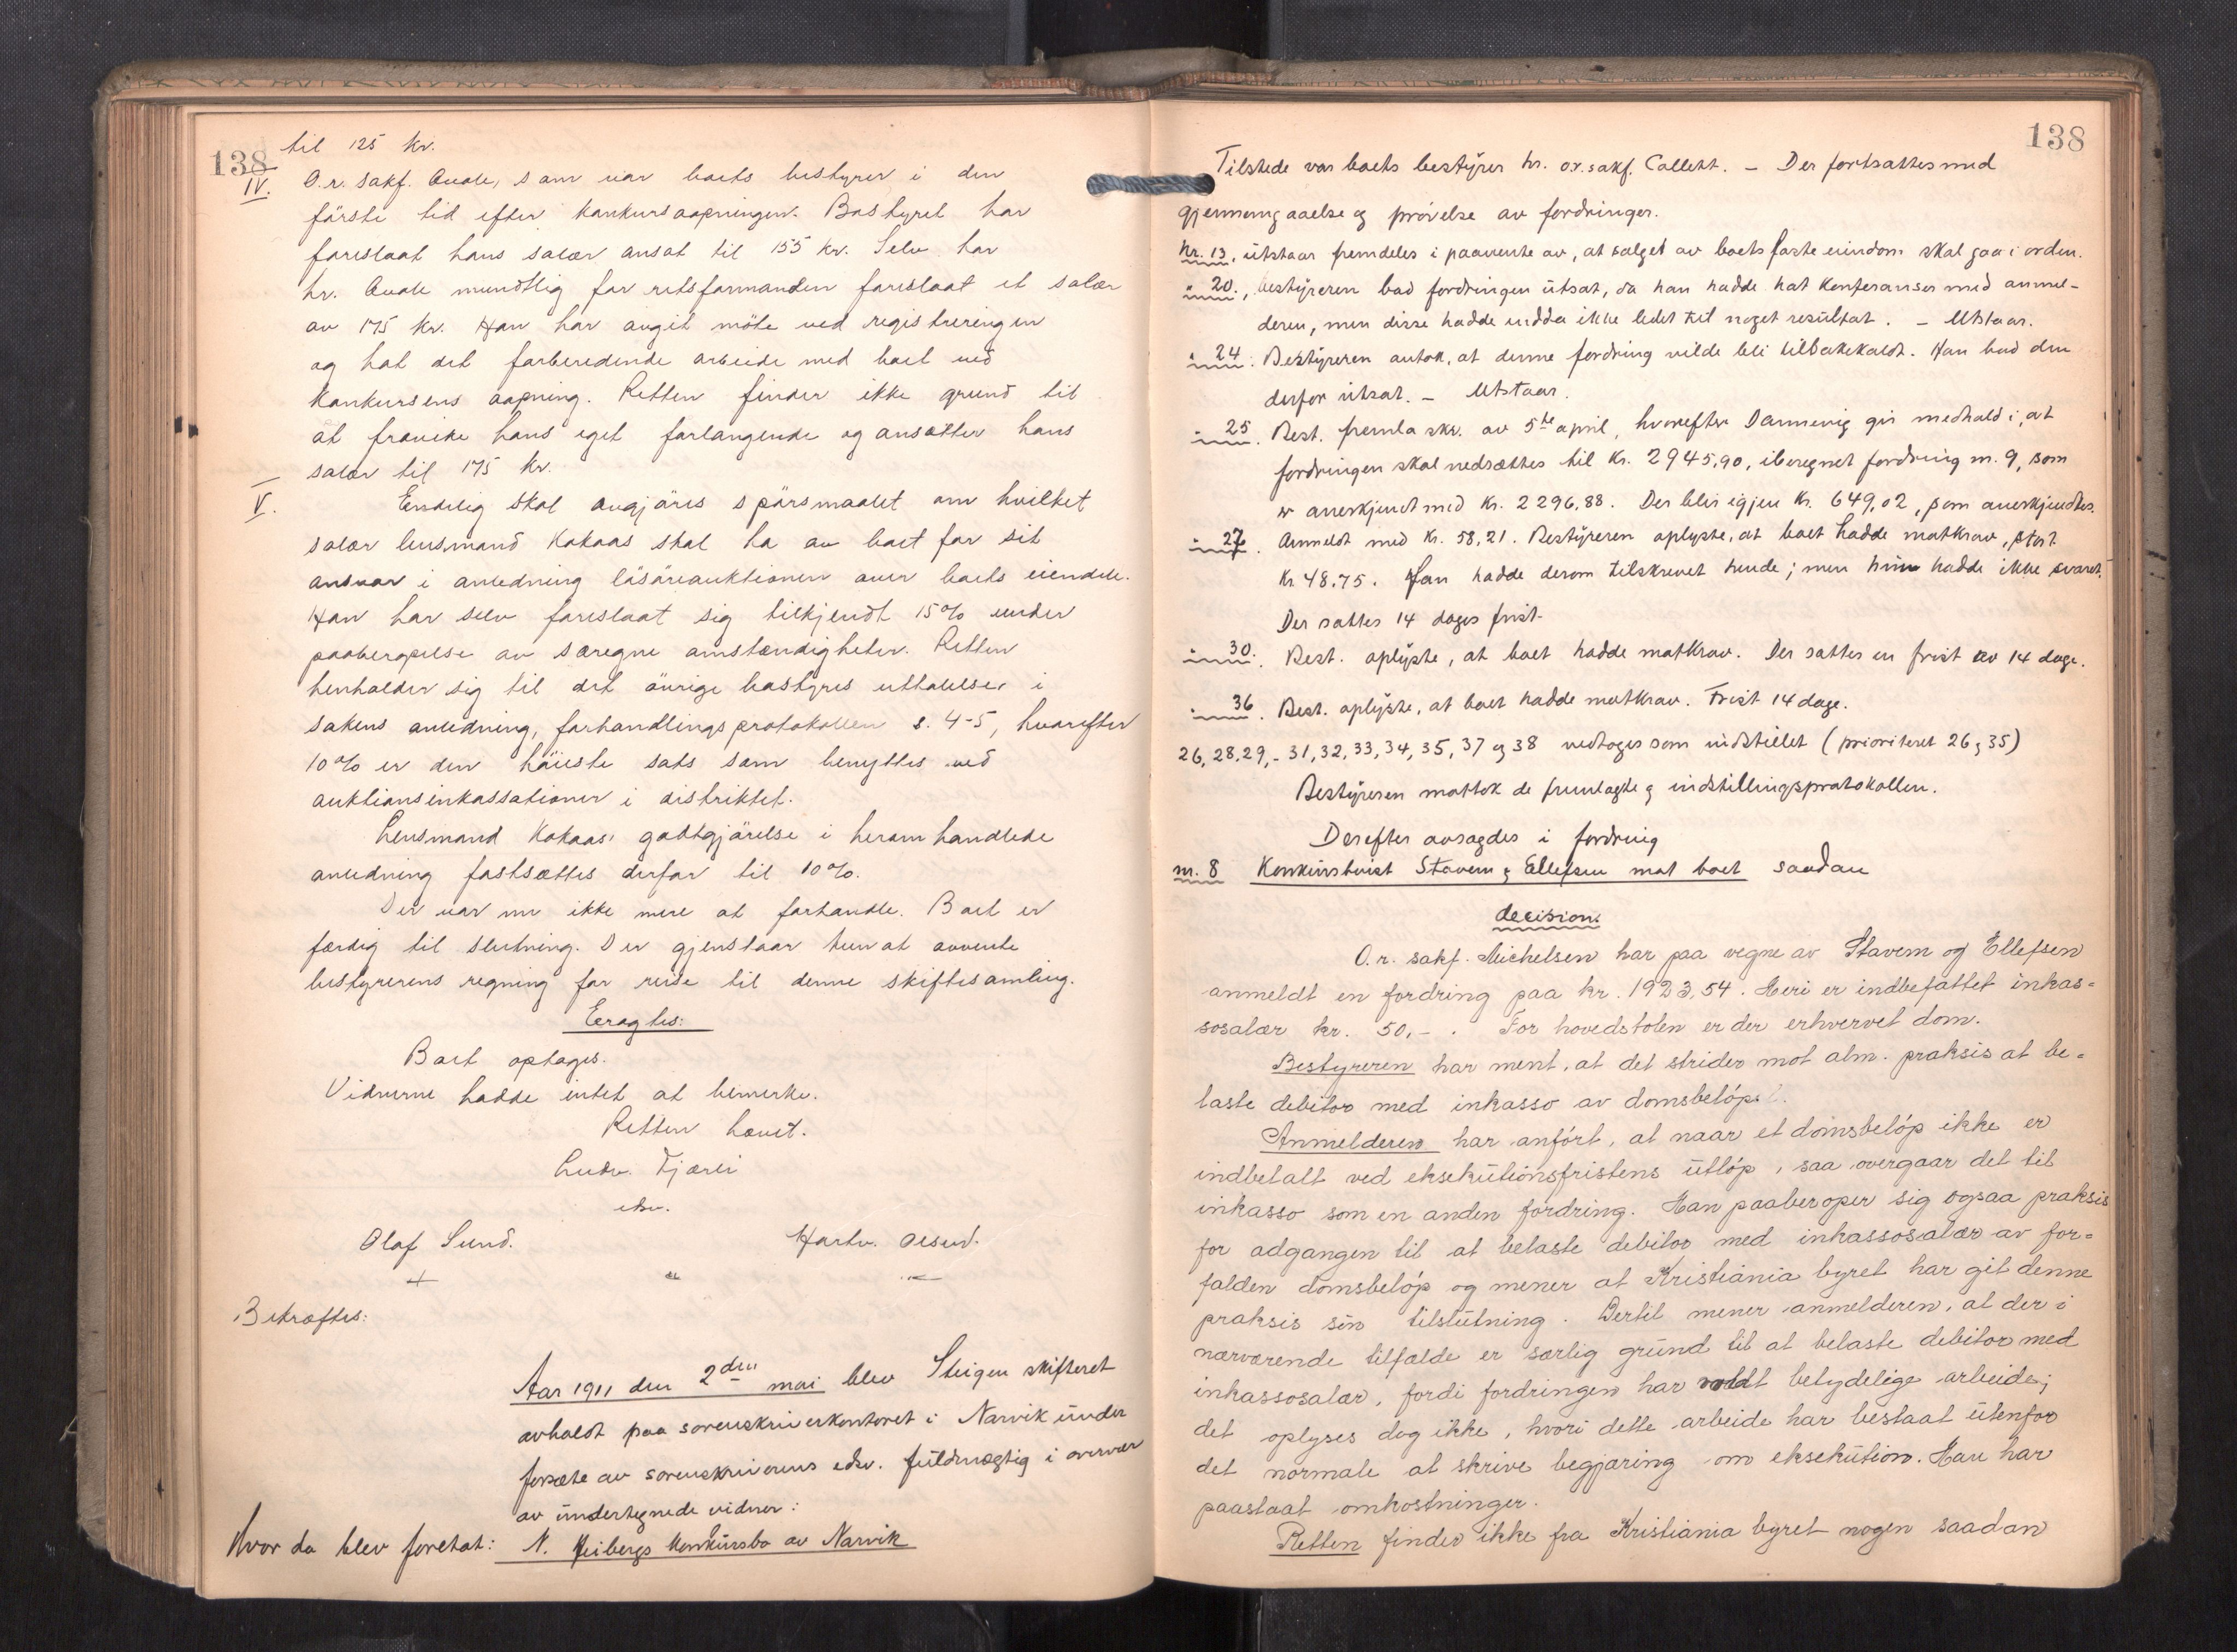 138
til 125 kr.
IV. O.r. sakf. Quale, som var boets bestyrer i den
förste tid efter konkursaapningen. Bostyret har
foreslaat hans salær ansat til 155 kr. Selv har
hr. Quale mundtlig for retsformanden foreslaat et salær
av 175 kr. Han har avgit möte ved registreringen
og hat det forberedende arbeide med boet ved
konkursens aapning. Retten finder ikke grund til
at fravike hans eget forlangende og ansætter hans
salær til 175 kr.
V. Endelig skal avgjöres spörsmaalet om hvilket
salær lensmand Kokaas skal ha av boet for sit
ansvar i anledning lösöreauktionen over boets eiendele.
Han har selv foreslaat sig tilkjendt 15% under
paaberopelse av særegne omstændigheter. Retten
henholder sig til det övrige bostyres uttalelser i
sakens anledning, forhandlingsprotokollen s. 4-5, hvorefter
10% er den höieste sats som benyttes ved
auktionsinkassationer i distriktet.
Lensmand Kokaas' godtgjörelse i heromhandlede
anledning fastsættes derfor til 10%.
Der var nu ikke mere at forhandle. Boet er
færdig til slutning. Der gjenstaar kun at avvente
bestyrerens regning for reise til denne skiftesamling.
Eragtes:
Boet optages.
Vidnerne hadde intet at bemerke.
Retten hævet.
Ludv. Fjærli
edsv.
Olaf Sund. Hartv. Olsen.
Bekræftes:
Aar 1911 den 2den mai blev Steigen skifteret
avholdt paa sorenskriverkontoret i Narvik under
forsæte av sorenskriverens edsv. fuldmægtig i overvær
av undertegnede vidner:
Hvor da blev foretat: N. Heibergs konkursbo av Narvik
138
Tilstede var boets bestyrer hr. o.r.sakf. Collett. - Der fortsattes med
gjennemgaaelse og prövelse av fordringer.
Nr. 13, utstaar fremdeles i paavente av, at salget av boets faste eiendom skal gaa i orden.
" 20., bestyreren bad fordringen utsat, da han hadde hat konferanser med anmel-
deren, men disse hadde endda ikke ledet til noget resultat. - Utstaar.
" 24. Bestyreren antok, at denne fordring vilde bli tilbakekaldt. Han bad den
derfor utsat. - Utstaar.
" 25. Best. fremla skr. av 5te april, hvorefter Dannevig gir medhold i, at
fordringen skal nedsættes til kr. 2945,90, iberegnet fordring nr. 9, som
er anerkjendt med kr. 2296,88. Der blir igjen kr. 649,02, som anerkjendtes.
" 27. Anmeldt med kr. 58,21. Bestyreren oplyste, at boet hadde motkrav, stort
kr 48.75. Han hadde derom tilskrevet hende; men hun hadde ikke svaret.
Der sattes 14 dages frist.
" 30. Best. oplyste, at boet hadde motkrav. Der sattes en frist av 14 dage.
" 36. Best. oplyste, at boet hadde motkrav. Frist 14 dage.
26, 28, 29, - 31, 32, 33, 34, 35, 37 og 38 vedtoges som indstillet (prioriteret 26 og 35)
Bestyreren mottok de fremlagte og indstillingsprotokollen.
Derefter avsagdes i fordring
nr. 8 Konkurstvist Stavem & Ellefsen mot boet saadan
decision:
O.r. sakf. Michelsen har paa vegne av Stavem og Ellefsen
anmeldt en fordring paa kr. 1923,54. Heri er indbefattet inkas=
sosalær kr. 50,- . For hovedstolen er der erhvervet dom.
Bestyreren har ment, at det strider mot alm. praksis at be=
laste debitor med inkasso av domsbelöp.
Anmelderen har anfört, at naar et domsbelöp ikke er
indbetalt ved eksekutionsfristens utlöp, saa overgaar det til
inkasso som en anden fordring. Han paaberoper sig ogsaa praksis
for adgangen til at belaste debitor med inkassosalær av for=
falden domsbelöp og mener at Kristiania byret har git denne
praksis sin tilslutning. Dertil mener anmelderen, at der i
nærværende tilfælde er særlig grund til at belaste debitor med
inkassosalær, fordi fordringen har voldt betydelige arbeide;
det oplyses dog ikke, hvori dette arbeide har bestaat utenfor
det normale at skrive begjæring om eksekution. Han har
paastaat omkostninger.
Retten finder ikke fra Kristiania byret nogen saadan